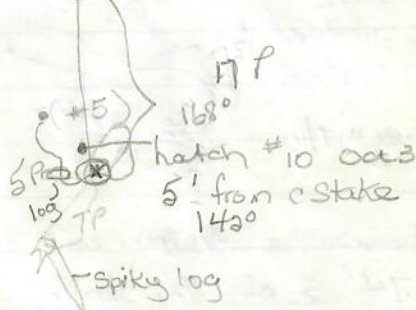 (#5)
17 P
168°
hatch #10 Oct 3
5' from c stake
142°
5 P
log
JP
Spiky log